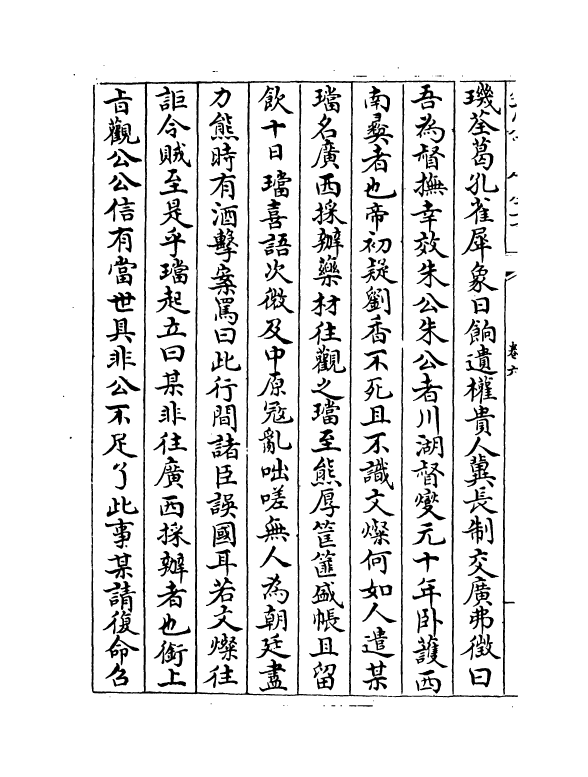 卷六
璣荃葛孔雀犀象日餉遺權貴人冀長制交廣弗徵曰
吾為督撫幸效朱公朱公者川湖督爕元十年卧護西
南彛者也帝初疑劉香不死且不識文燦何如人遣某
璫名廣西採辦藥材往觀之璫至熊厚筐篚盛帳且留
飲十日璫喜語次微及中原冦亂咄嗟無人為朝廷盡
力熊時有酒擊案罵曰此行間諸臣誤國耳若文燦往
詎令賊至是乎璫起立曰某非往廣西採辦者也銜上
旨觀公公信有當世具非公不足了此事某請復命名